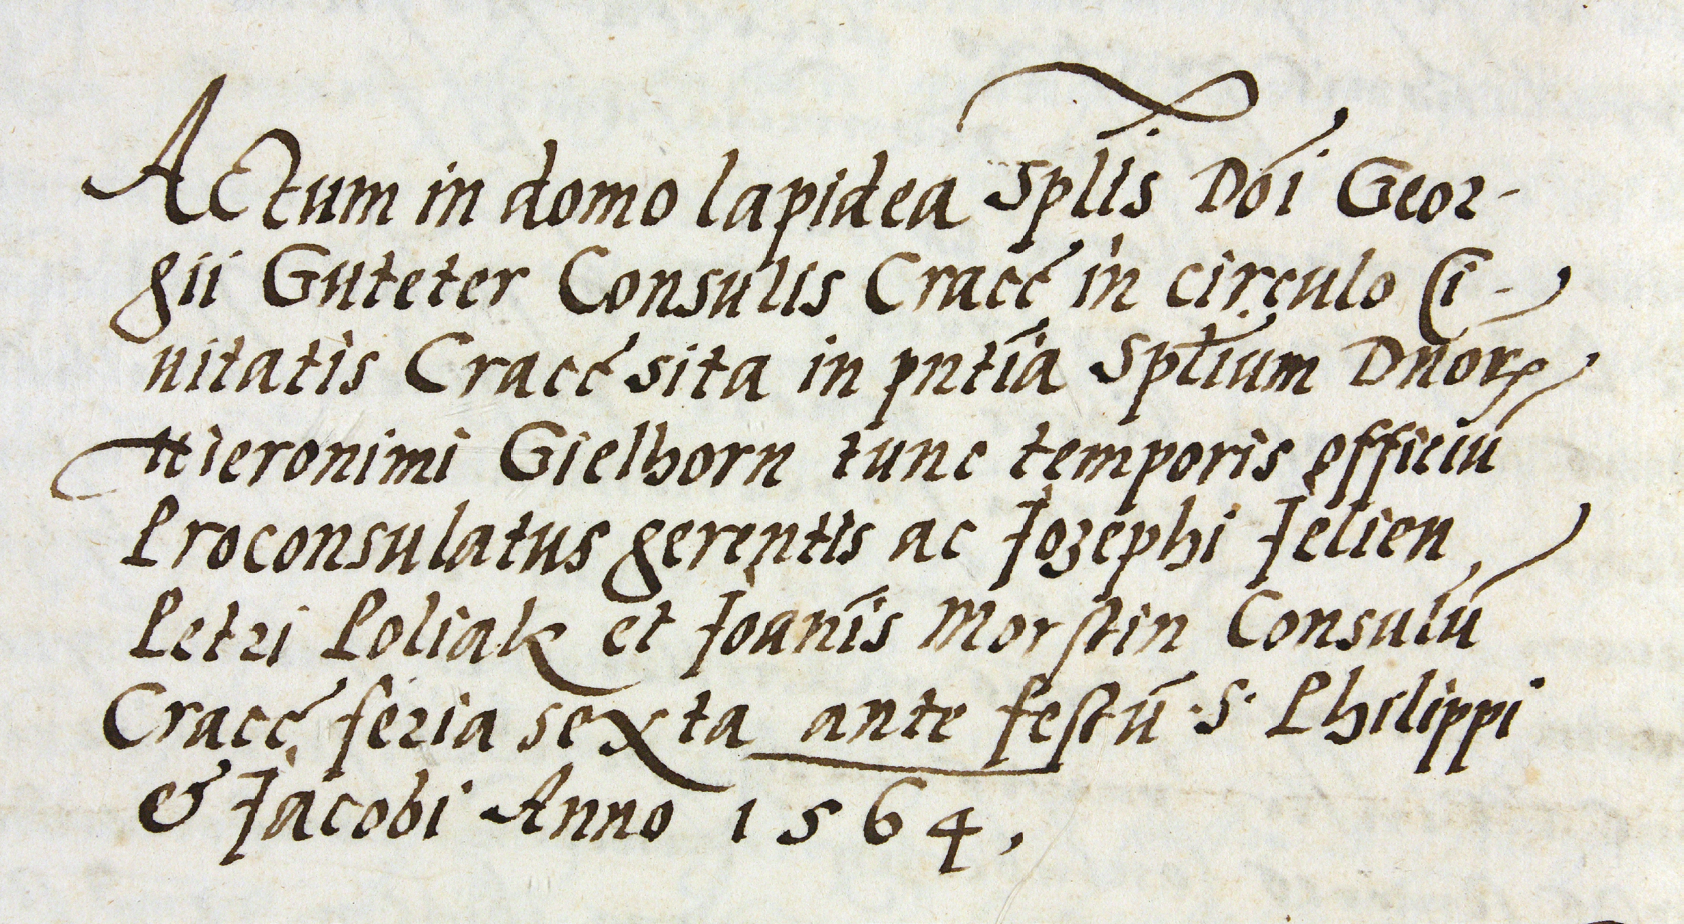 Actum in domo lapidea Splis Doi Geor-
gii Guteter Consulis Cracc in circulo Ci-
uitatis Cracc sita in pntia Sptium Dnorꝝ
Hieronimi Gielhorn tunc temporis officiū
Proconsulatus gerentis ac Jozephi Jelien
Petri Poliak et Joānis Morstin Consulū
Cracc feria sexta ante festū S. Philippi
& Jacobi Anno 1564,